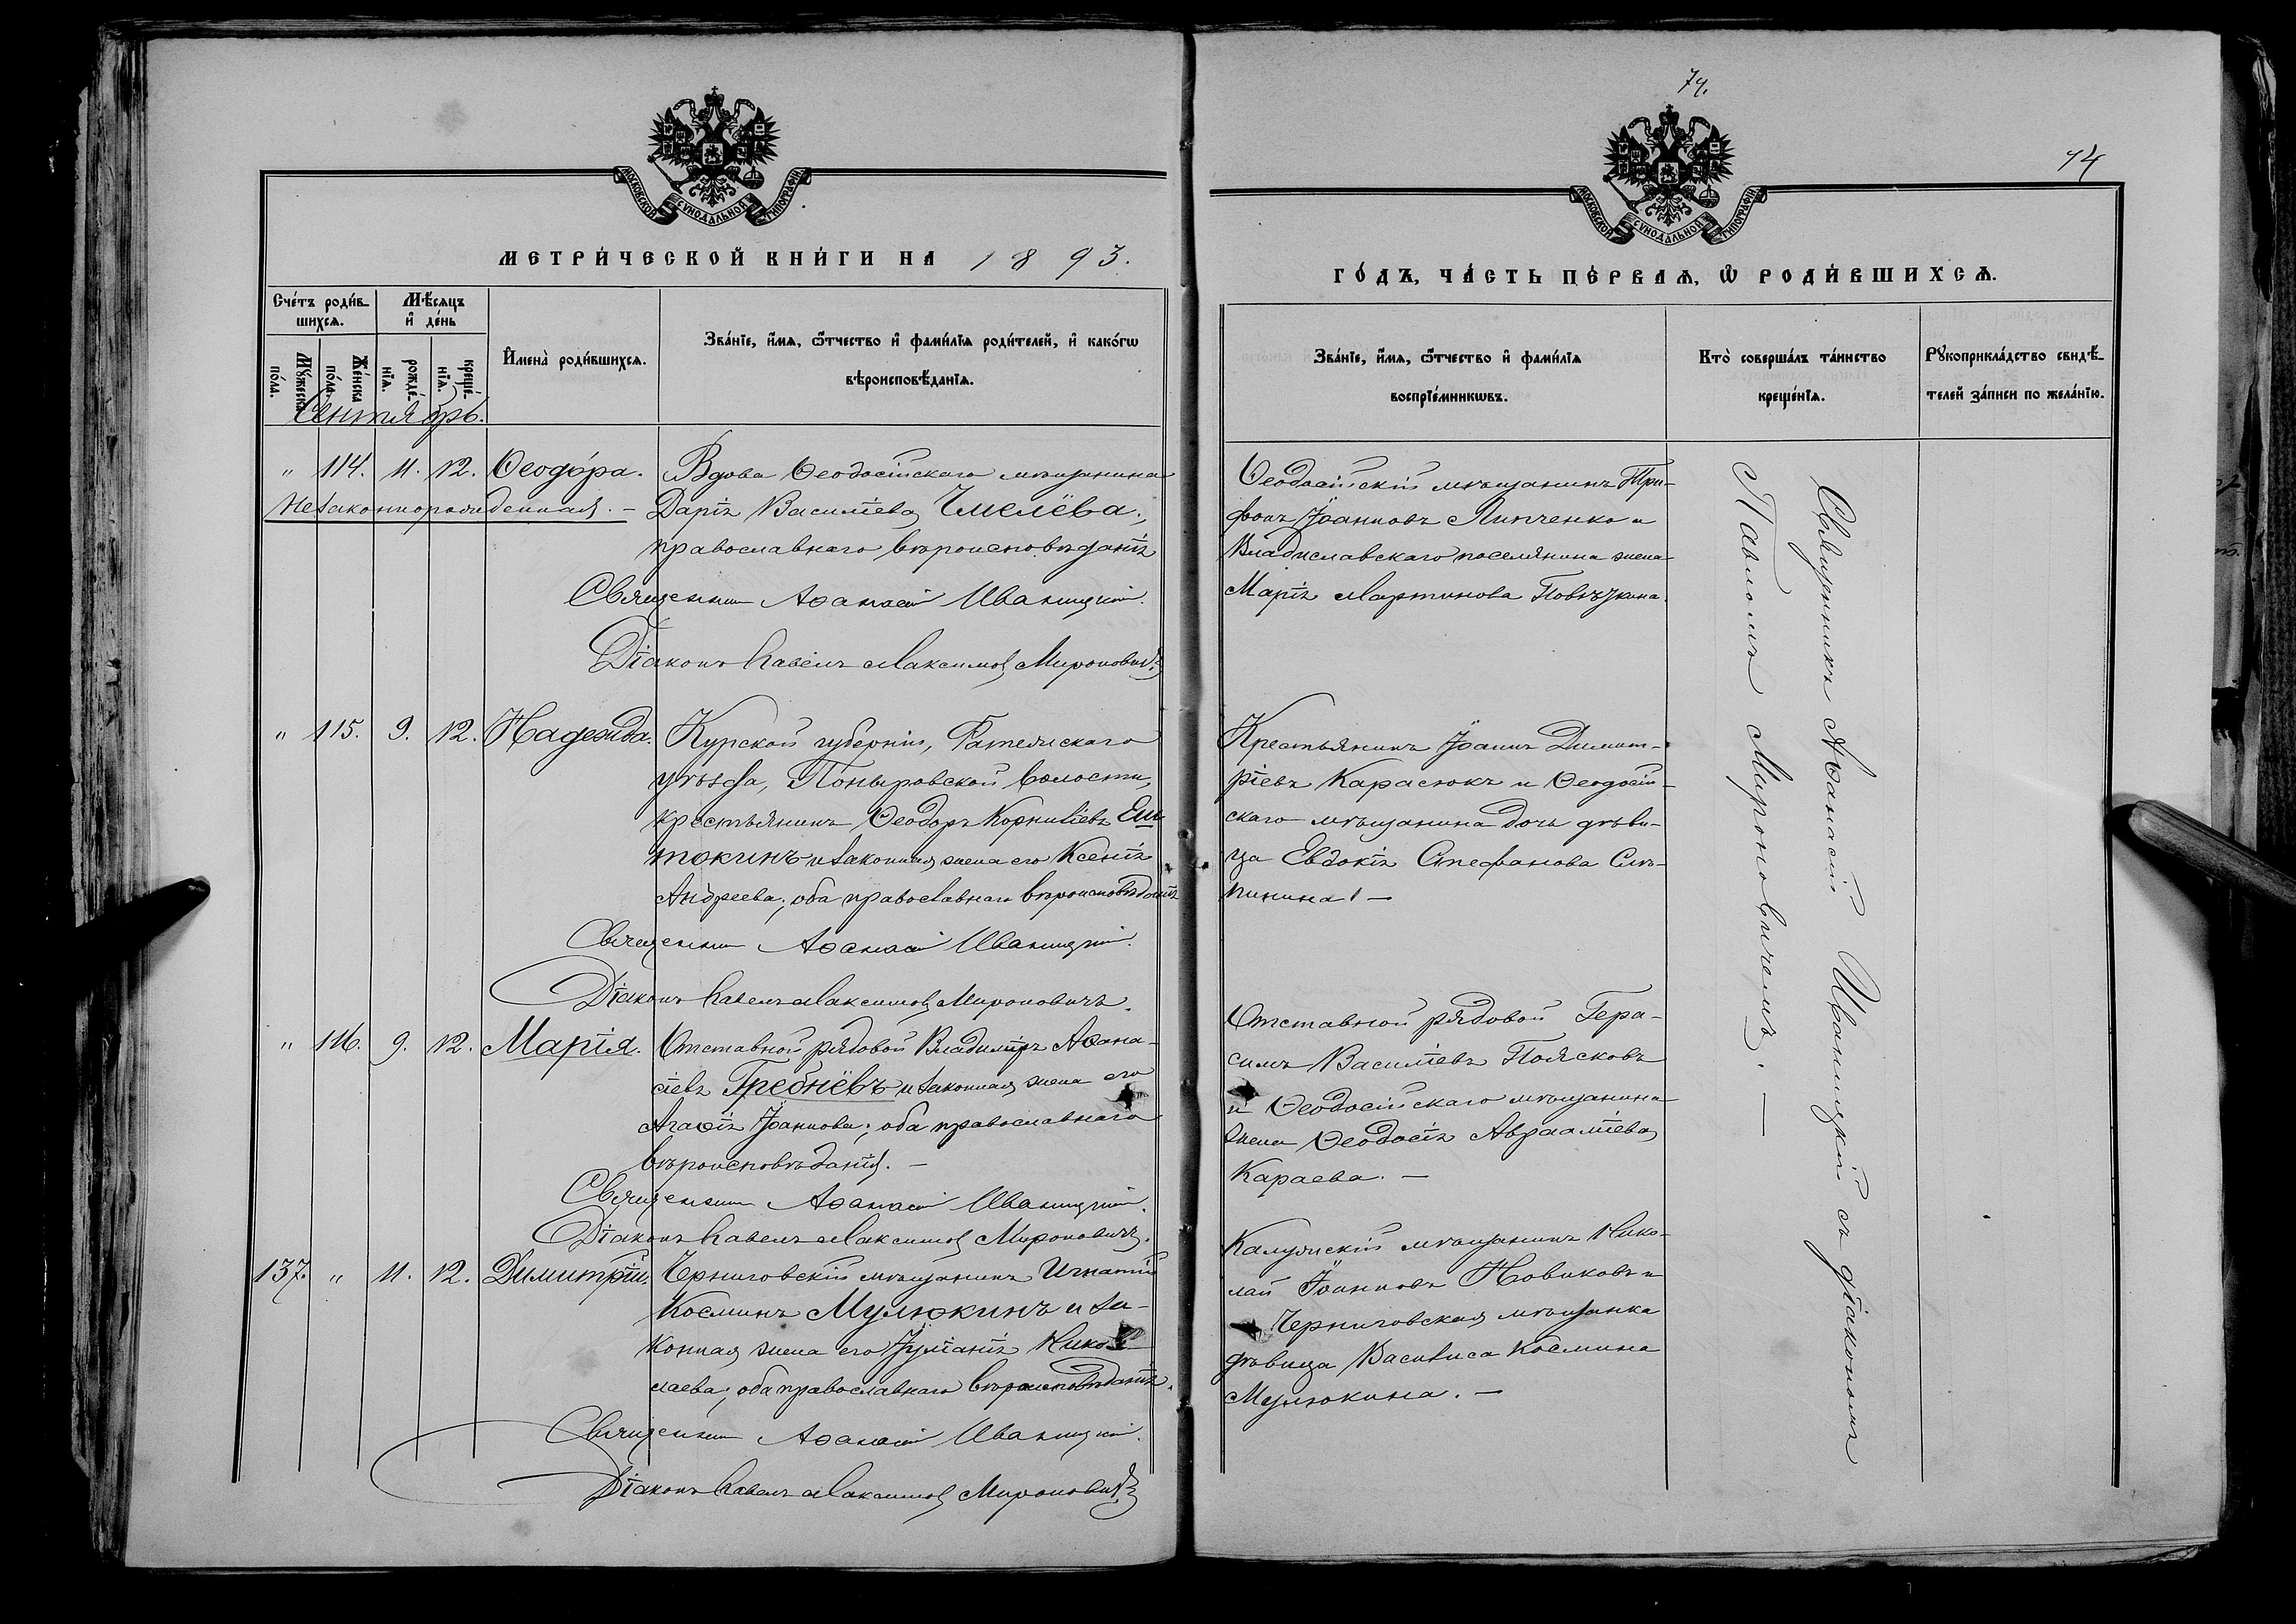 МОСКОВСКОЙ СѴНОДАЛЬНОЙ ТИПОГРАФІИ
МЕТРИ́ЧЕСКОЙ КНИ́ГИ НА 1893.
Сче́тъ роди́в-
шихсѧ.
Мѣ́сѧцъ
и҆ де́нь
Мꙋ́жеска
по́ла.
Же́нска
по́ла.
рожде́-
нїѧ.
креще́-
нїѧ.
И҆мена̀ роди́вшихсѧ.
Зва́нїе, и҆́мѧ, ѻ҆́тчество и҆ фами́лїѧ роди́телей, и҆ како́гѡ
вѣроисповѣ́данїѧ.
Сентябрь.
" 114. 11. 12. Ѳеодо́ра. Вдова Ѳеодосійскаго мѣщанина
Незаконнорожденная. – Дарія Василіева Чмелёва;
православнаго вѣроисповѣданія
Священник Аѳанасій Иваницкій.
Діаконъ Павелъ Максимов Мироновичъ
" 115. 9. 12. Надежда. Курской губерніи, Фатежскаго
уѣзда, Поныровской волости,
крестьянинъ Ѳеодоръ Корниліевъ Еш
токинъ и законная жена его Ксенія
Андреева; оба православнаго вѣроисповѣданія
Священник Аѳанасій Иваницкій.
Діаконъ Павелъ Максимов Мироновичъ.
" 116. 9. 12. Марія. Отставной рядовой Владиміръ Аѳана-
сіевъ Гребнёвъ и законная жена его
Агаѳія Іоаннова; оба православнаго
вѣроисповѣданія. –
Священник Аѳанасій Иваницкій.
Діаконъ Павелъ Максимов Мироновичъ.
137. " 11. 12. Димитрій. Черниговскій мѣщанинъ Игнатій
Косминъ Мулюкинъ и за-
конная жена его Іуліанія Нико-
лаева; оба православнаго вѣроисповѣданія.
Священник Аѳанасій Иваницкій.
Діаконъ Павелъ Максимов Мироновичъ
74.
74
МОСКОВСКОЙ СѴНОДАЛЬНОЙ ТИПОГРАФІИ
ГО́ДЪ, ЧА́СТЬ ПЕ́РВАѦ, Ѡ҆ РОДИ́ВШИХСѦ.
Зва́нїе, и҆́мѧ, ѻ҆́тчество и҆ фами́лїѧ
воспрїе́мникѡвъ.
Кто̀ соверша́лъ та́инство
креще́нїѧ.
Рꙋкоприкла́дство свидѣ́-
телей за́писи по жела́нїю.
Ѳеодосійскій мѣщанинъ Три-
фонъ Іоанновъ Липченко и
Владиславскаго поселянина жена
Марія Мартинова
Крестьянинъ Іоаннъ Димит-
ріевъ Карасюкъ и Ѳеодосій-
скаго мѣщанина дочь дѣви-
ца Евдокія Стефанова Слѣ-
пинина. –
Отставной рядовой Гера-
симъ Василіевъ Поясковъ
и Ѳеодосійскаго мѣщанина
жена Ѳеодосія Авраамiева
Караева. –
Калужскій мѣщанинъ Нико-
лай Іоанновъ Новиковъ и
Черниговская мѣщанка
дѣвица Василиса Космина
Мулюкина. –
Священникъ Аѳанасій Иваницкій съ діакономъ
Павломъ Мироновичемъ. –